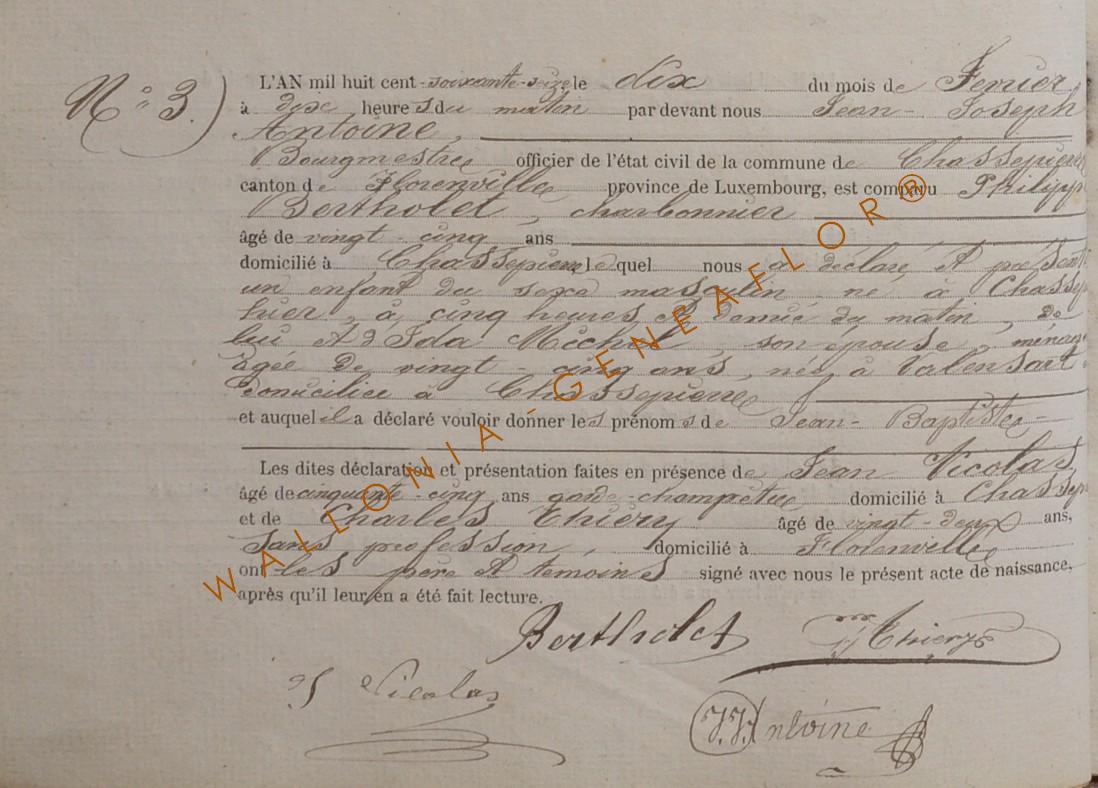 N° 3.)
L'AN mil huit cent soixante-seize le dix du mois de Fevrier
à dix heures du matin par devant nous Jean-Joseph
Antoine,
Bourgmestre officier de l'état civil de la commune de Chassepierre
canton de Florenville province de Luxembourg, est comparu Philipp
Bertholet, charbonnier
âgé de vingt-cinq ans
domicilié à Chassepierre lequel nous a déclaré et présenté
un enfant du sexe masculin, né à Chassep
hier, à cinq heures et demie du matin, de
lui et d'Ida Michel, son épouse, ménag
âgée de vingt-cinq ans, née à Valensart
domiciliée à Chassepierre
et auquel il a déclaré vouloir donner les prénoms de Jean-Baptiste
Les dites déclaration et présentation faites en présence de Jean Nicolas,
âgé de cinquante-cinq ans garde-champêtre domicilié à Chassep
et de Charles Thiéry âgé de vingt-deux ans,
sans profession, domicilié à Florenville
ont les père et temoins signé avec nous le présent acte de naissance,
après qu'il leur en a été fait lecture.
Bertholet Thiery
J Nicolas
J.J. Antoine
WALLONIA-GENEAFLOR®